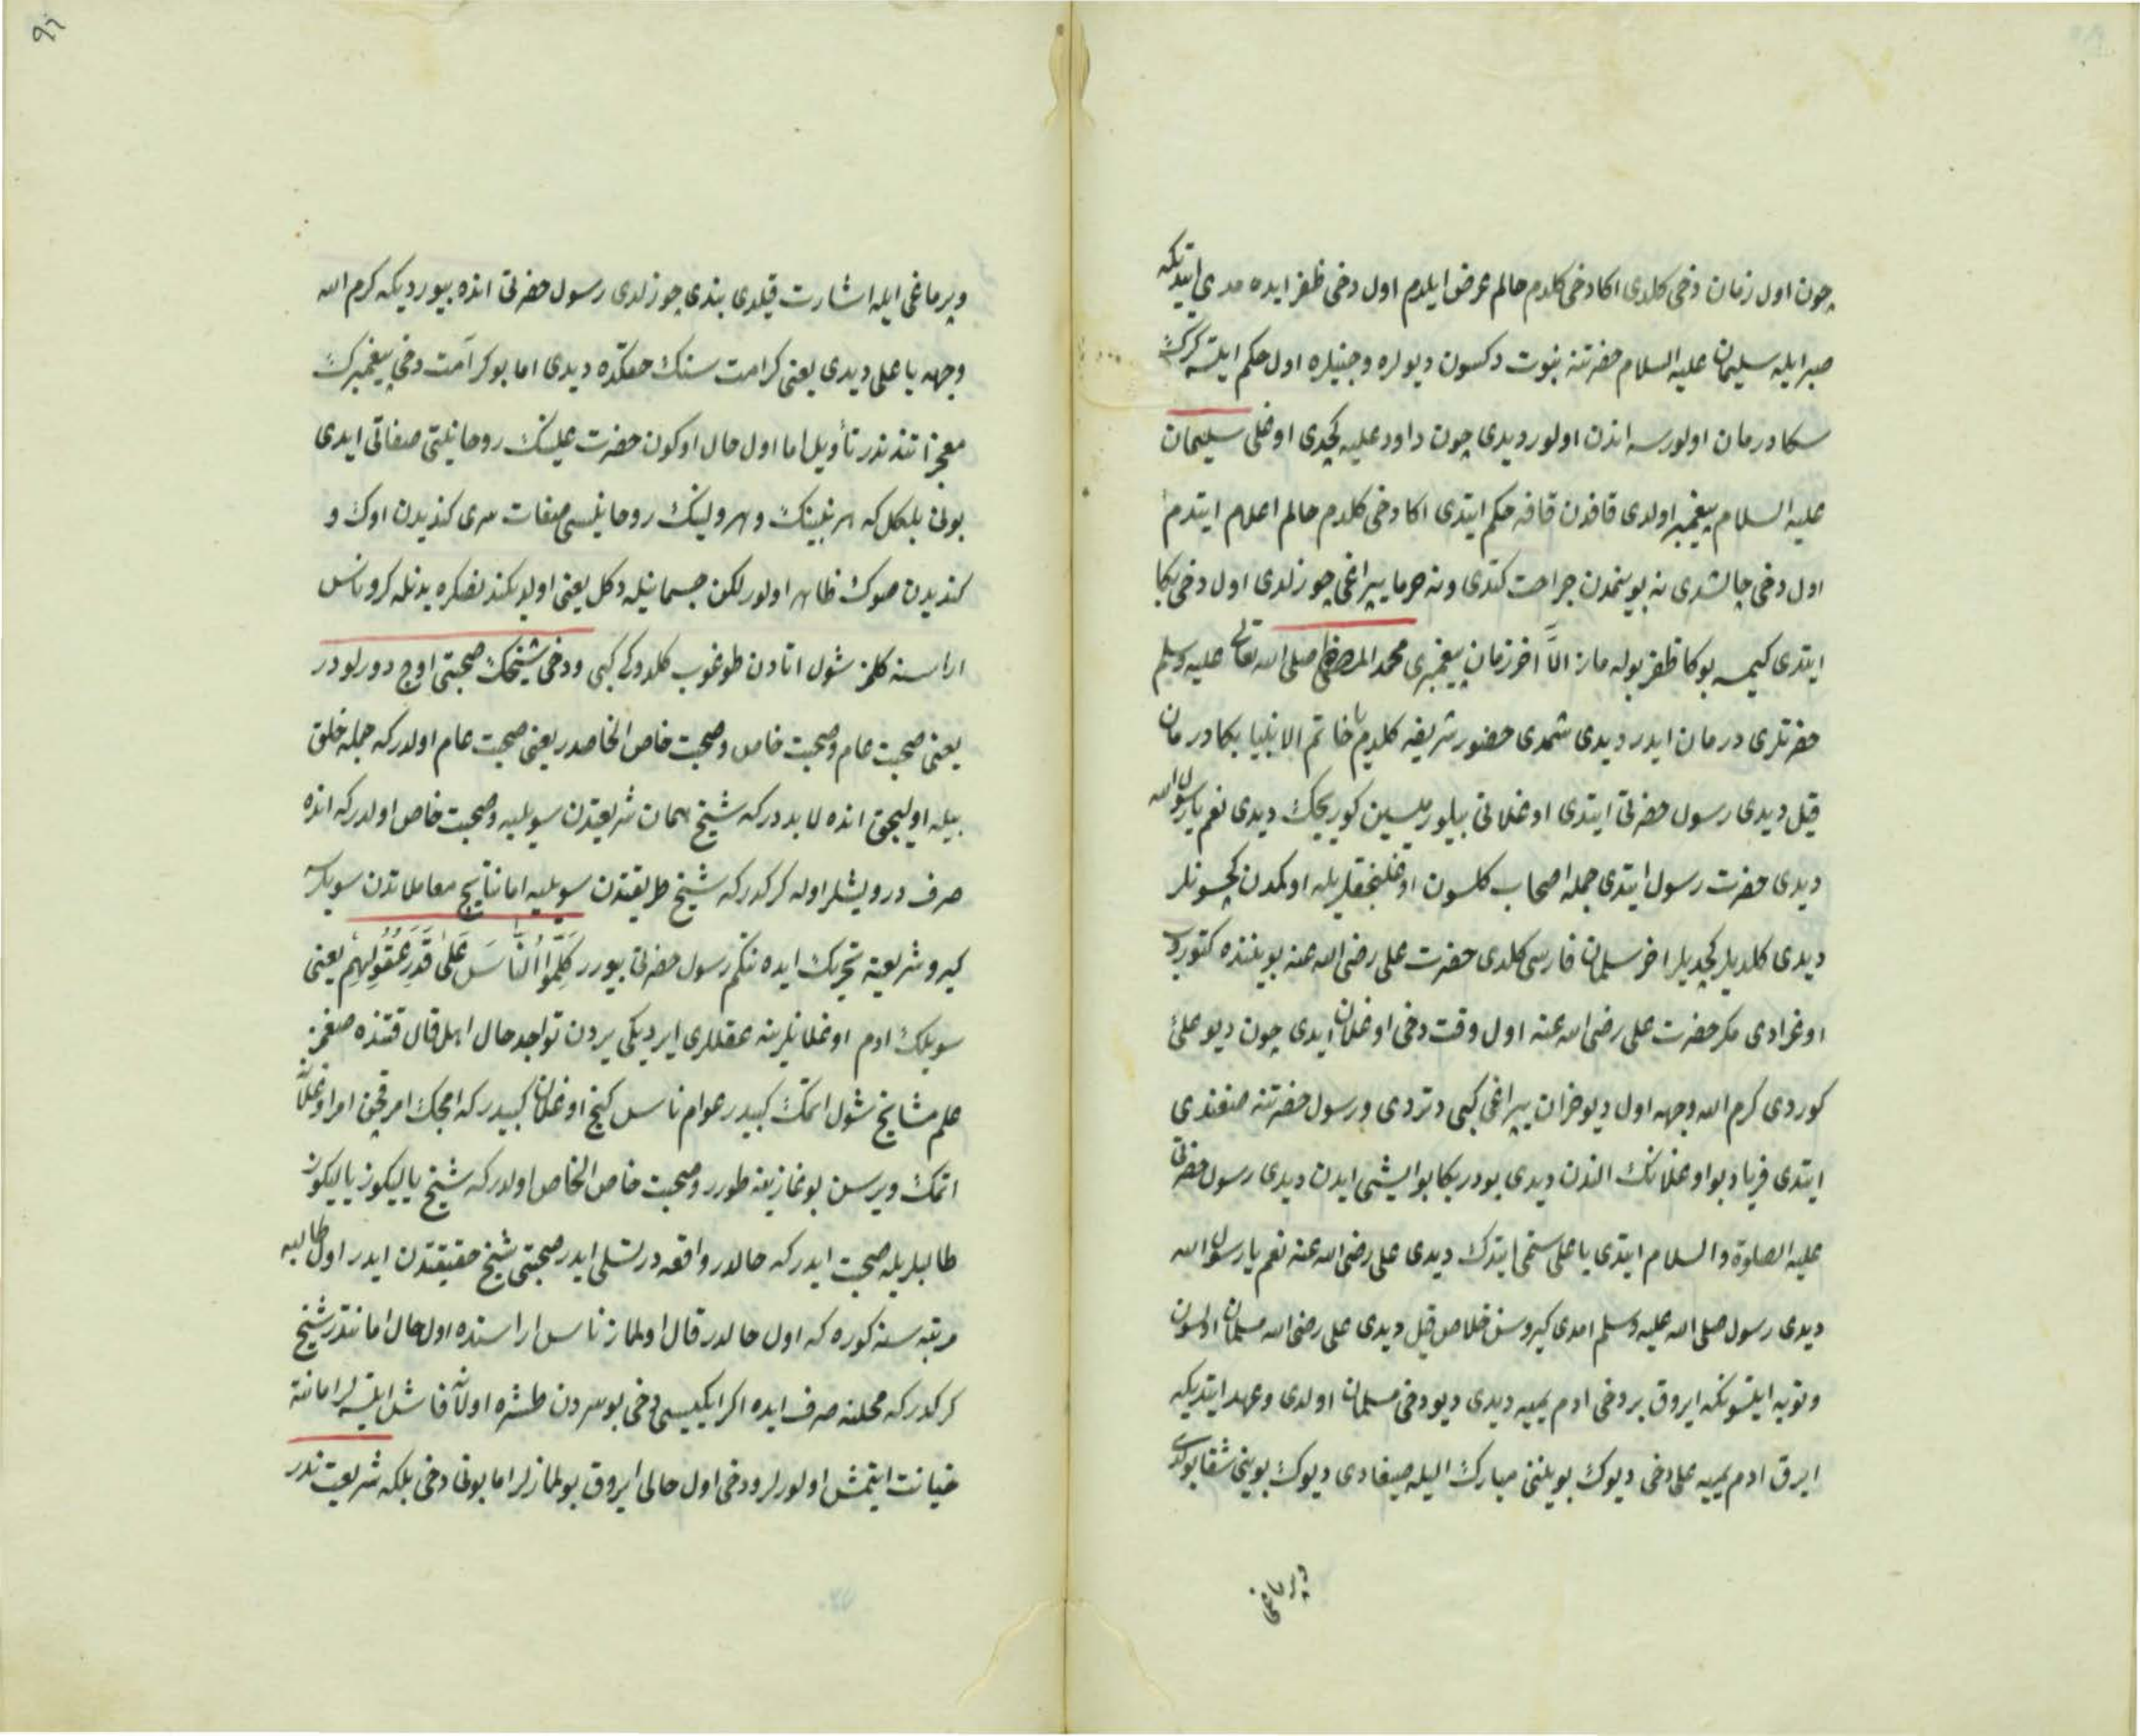 چون اول زمان دخی کلدی اکا دخی کلدم حالم عرض ایلدم اول دخی ظفر ایده مدی ایتدیکه
صبر ایله سلیمان علیه السلام حضرتنه نبوت دکسون دیولره و جنیلره اول حکم ایلسه کرک
سکا درمان اولورسه اندن اولور دیدی چون داود علیه کچدی اوغلی سلیمان
علیه السلام پیغمبر اولدی قافدن قافه حکم ایتدی اکا دخی کلدم حالم اعلام ایتدم
اول دخی چالشدی نه بوینمدن جراحت کتدی ونه خرما یپراغی چوزلدی اول دخی بکا
ایتدی کیمسه بوکا ظفر بوله ماز الّا اخر زمان پیغمبری محمد المصطفی صلی الله تعالی علیه وسلم
حضرتلری درمان ایدر دیدی شمدی حضور شریفه کلدم یا خاتم الانبیا بکا درمان
قیل دیدی رسول حضرتی ایتدی اوغلانی بیلورمیسین کوریجک دیدی نعم یا رسول الله
دیدی حضرت رسول ایتدی جمله اصحاب کلسون اوغلنجقلریله اوکمدن کچسونلر
دیدی کلدیلر کچدیلر اخر سلمان فارسی کلدی حضرت علی رضی الله عنه بویننده کتوردی
اوغرادی مکر حضرت علی رضی الله عنه اول وقت دخی اوغلان ایدی چون دیو علی
کوردی کرم الله وجهه اول دیو خزان یپراغی کبی دتردی و رسول حضرتنه صغندی
ایتدی فریاد بو اوغلانک الندن دیدی بودر بکا بو ایشی ایدن دیدی رسول حضرتی
علیه الصلوة والسلام ایتدی یا علی سنمی ایتدک دیدی علی رضی الله عنه نعم یا رسول الله
دیدی رسول صلی الله علیه وسلم امدی کیرو سن خلاص قیل دیدی علی رضی الله مسلمان اولسون
و توبه ایلسونکه ایروق بر دخی ادم یمیه دیدی دیو دخی مسلمان اولدی و عهد ایتدیکه
ایرق ادم یمیه علی دخی دیوک بوینی مبارک الیله صیغادی دیوک بوینی شفا بولدی
وبرماغی
٩٦
وبرماغی ایله اشارت قیلدی بندی چوزلدی رسول حضرتی انده بیوردیکه کرم الله
وجهه یا علی دیدی یعنی کرامت سنک حقکده دیدی اما بو کرامت دخی پیغمبرک
معجزاتندندر تأویل اما اول حال اوکون حضرت علینک روحانیتی صفاتی ایدی
بونی بلکل که هر نبینک و هر ولینک روحانیسی صفات سری کندیدن اوک و
کندیدن صوک ظاهر اولور لکن جسمانیله دکل یعنی اولدکندنصکره بدنله کرو ناس
اراسنه کلمز شول انادن طوغوب کلدوکی کبی ودخی شیخک صحبتی اوچ دورلودر
یعنی صحبت عام و صحبت خاص و صحبت خاص الخاصدر یعنی صحبت عام اولدرکه جمله خلق
بیله اولیجق انده لابددرکه شیخ همان شریعتدن سویلیه و صحبت خاص اولدرکه انده
صرف درویشلر اوله کرکدرکه شیخ طریقتدن سویلیه اما نتایج معاملاتدن سویلیه
کیرو شریعته تحریک ایده نتکم رسول حضرتی بیورر كَلِّمُوا النَّاسَ عَلٰى قَدَرِ عُقُولِهِمْ یعنی
سویلک ادم اوغلانلرینه عقللری ایردیکی یردن تواجد حال اهل قال قتنده صغمز
علم مشایخ شول اتمک کبیدر عوام ناس کنج اوغلان کبیدرکه امجک امر قچن امر اوغلانه
اتمک ویرسن بوغازینه طورر و صحبت خاص الخاص اولدرکه شیخ یالیکوز یالیکوز
طالبلریله صحبت ایدرکه حالدر واقعه در تسلی ایدر صحبتی شیخ حقیقتدن ایدر اول طالبه
مرتبه سنه کوره که اول حالدر قال اولماز ناس اراسنده اول حال امانتدر شیخ
کرکدرکه محلنه صرف ایده اکر ایکیسی دخی بو سردن طشره اولانه فاش ایلسه لر امانته
خیانت ایتمش اولورلر ودخی اول حالی ایروق بولمازلر اما بونی دخی بلکه شریعت ندر